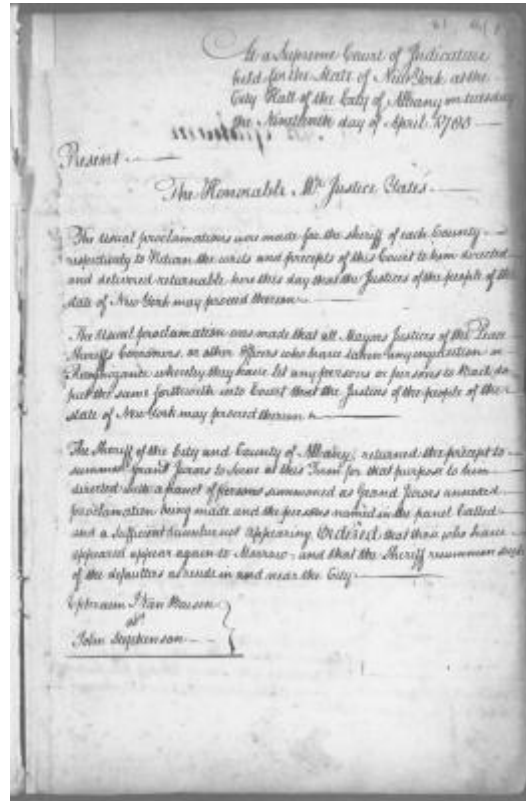 At a Supreme Court of Judicature
held for the State of New York at the
City Hall of the City of Albany on tuesday
the Nineteenth day of April
Present
The Honorable Mr. Justice Yates
The Usual proclamations were made for the sheriff of each County
respectively to Return the writs and precepts of this Court to him directed
and delivered returnable here this day that the Justices of the people of the
state of New York may proceed thereon
The Usual proclamation was made that all Mayors Justices of the Peace
Sheriffs Coroners, or other Officers who have taken any inquisition or
Recognizance whereby they have let any persons or persons to do
put the same forthwith into Court that the Justices of the people of the
state of New York may proceed thereon
The Sheriff of the City and County of Albany, returned the precept to
summon grand Jurors to Serve at this Term for that purpose to him
directed with a panel of persons summoned as Grand Jurors annexed
proclamation being made and the persons named in the panel Called
and a sufficient number not appearing Ordered that those who have
appeared appear again to Morrow, and that the Sheriff resummon such
of the defaulters as reside in and near the City
Ephraim Van
John